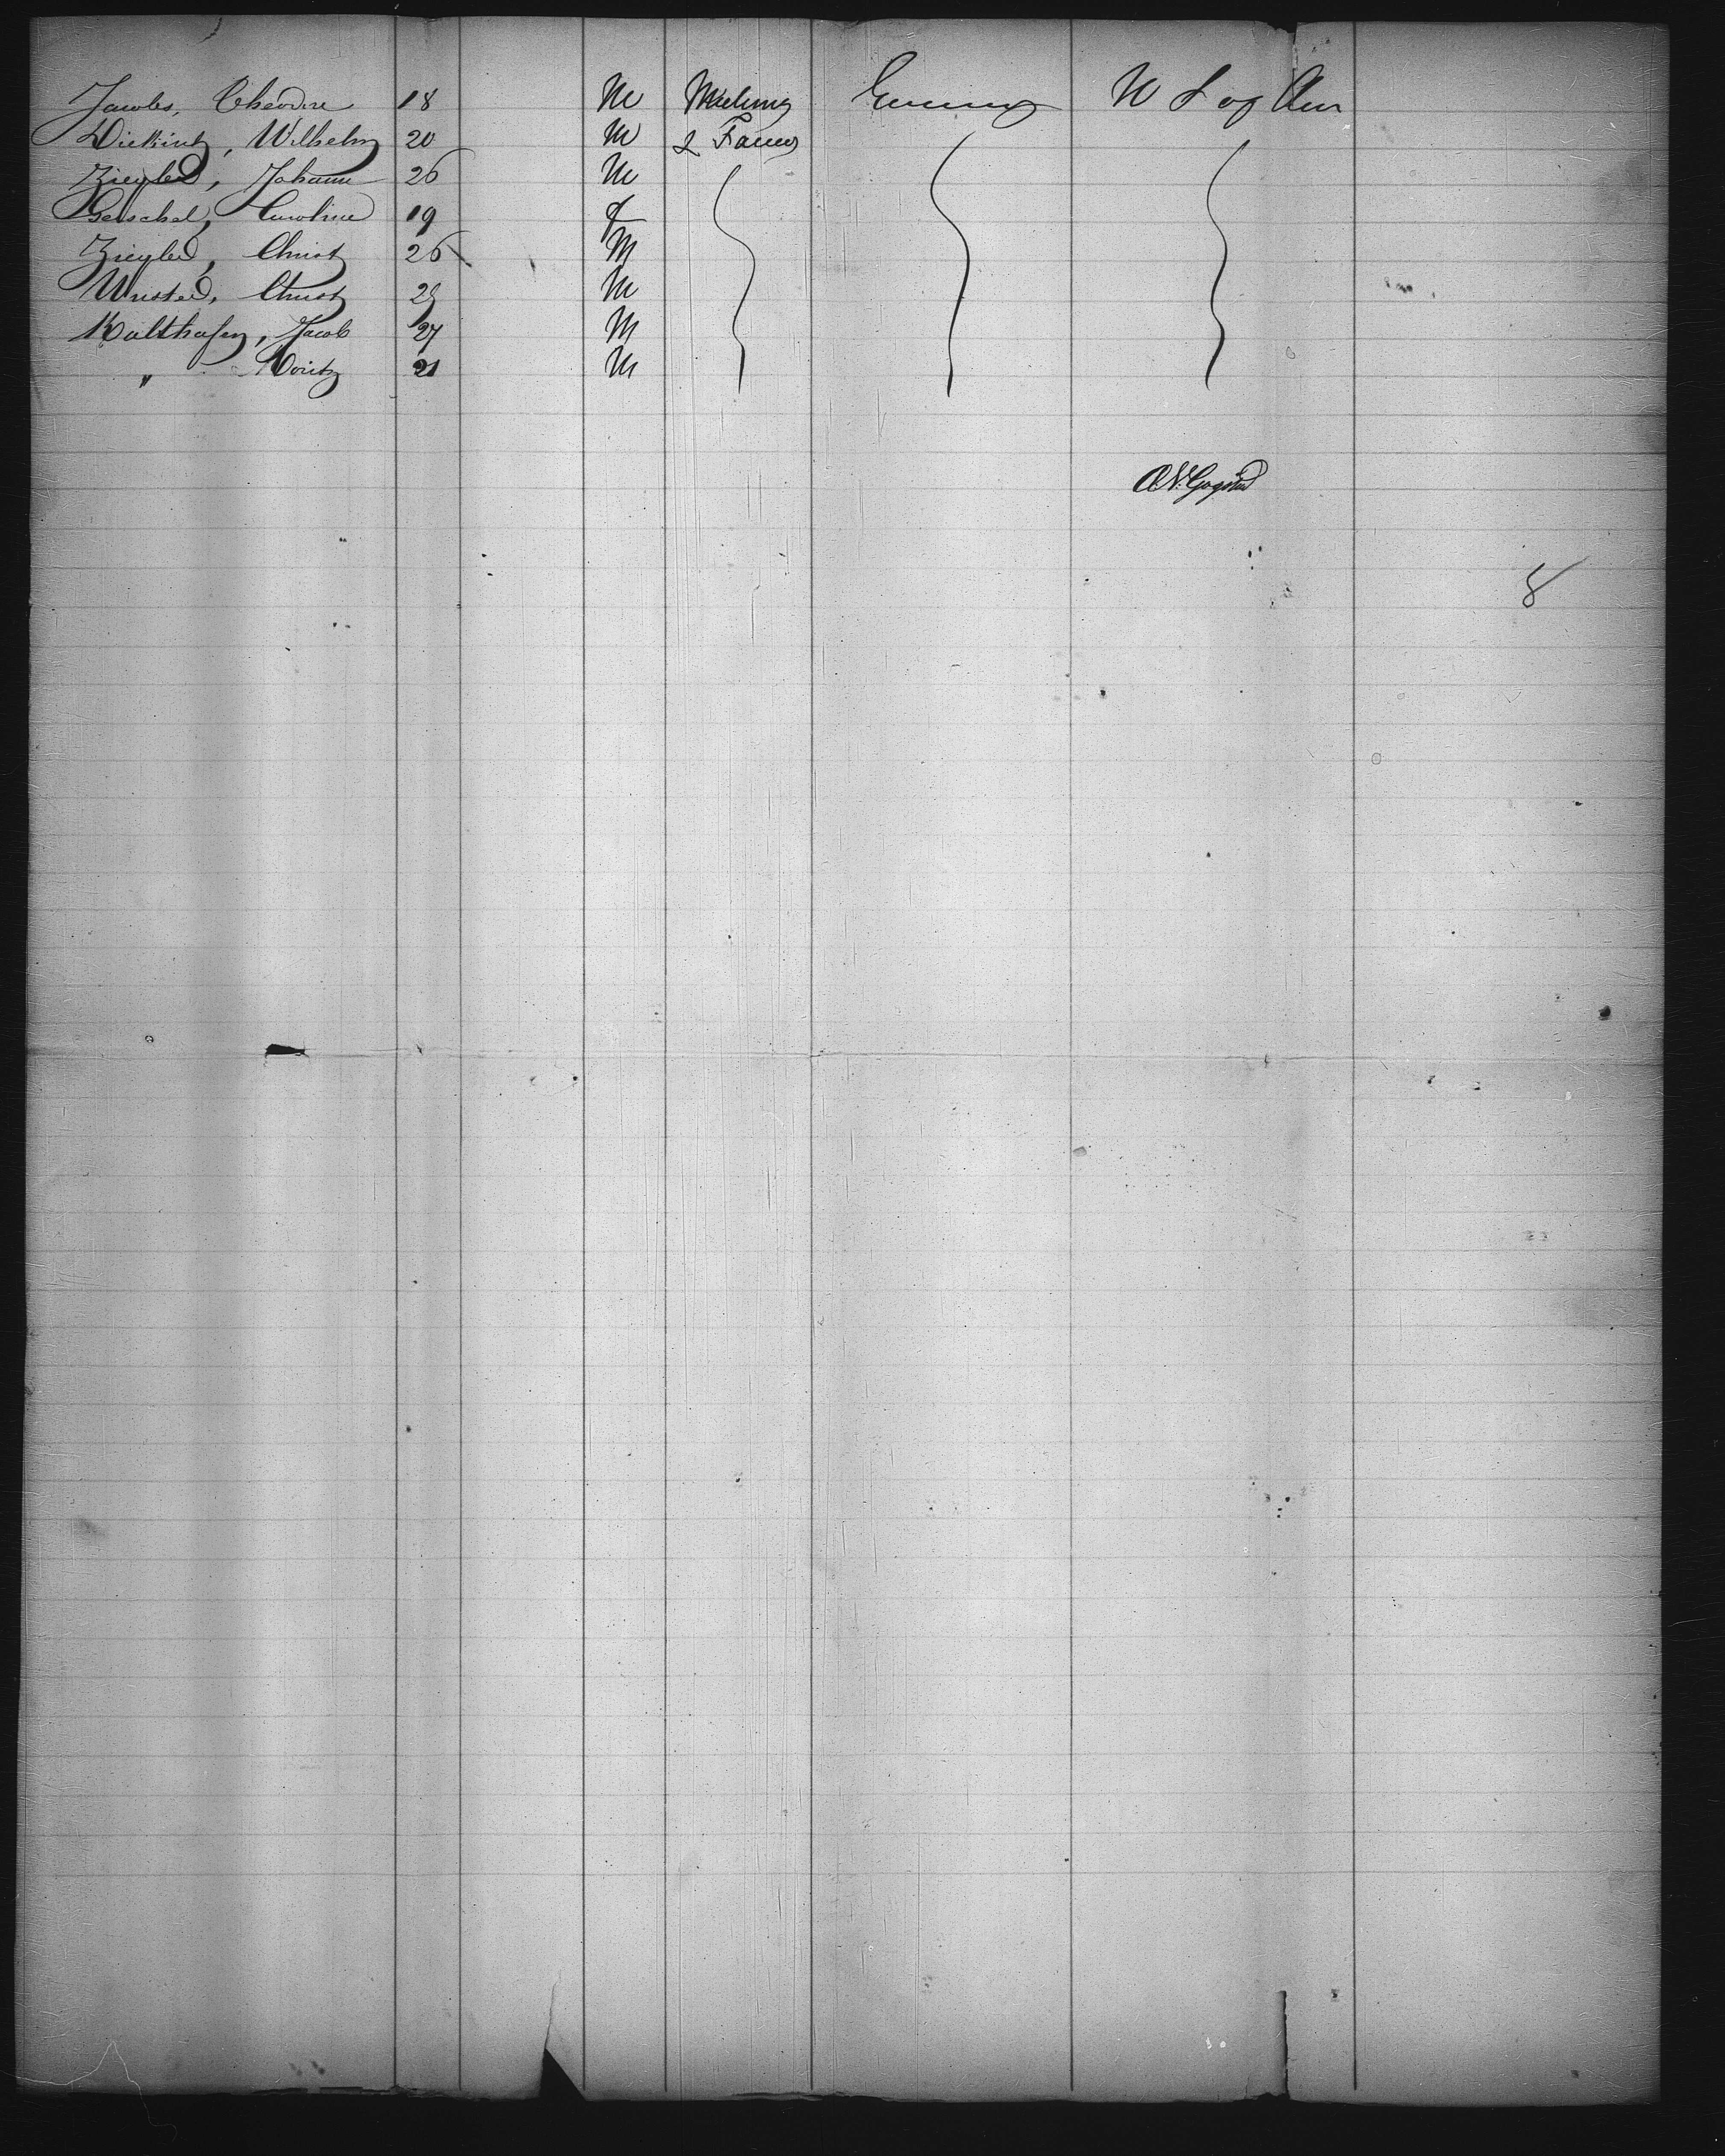 Jacobs, Theodore 18 M Mechanics Germany U S of Am
Dickint, Wilhelm 20 M & Farmers
Ziegler, Johann 26 M
Gerschel, Caroline 19 f
Ziegler, Christ 26 M
Christ 29 M
Kalthafen, Jacob 27 M
" Moritz 21 M
8